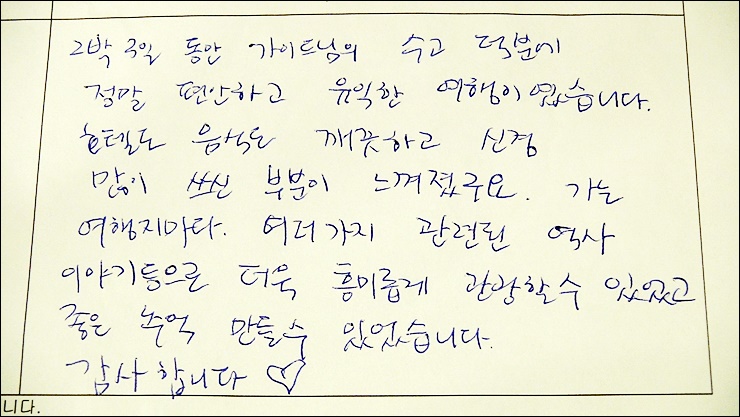 2박 3일 동안 가이드님의 수고 덕분에
정말 편안하고 유익한 여행이였습니다.
호텔도 음식도 깨끗하고 신경
많이 쓰신 부분이 느껴졌구요. 가는
여행지마다. 여러가지 관련된 역사
이야기등으로 더욱 흥미롭게 관광할수 있었고
좋은 추억 만들수 있었습니다.
감사합니다 ♡
니다.